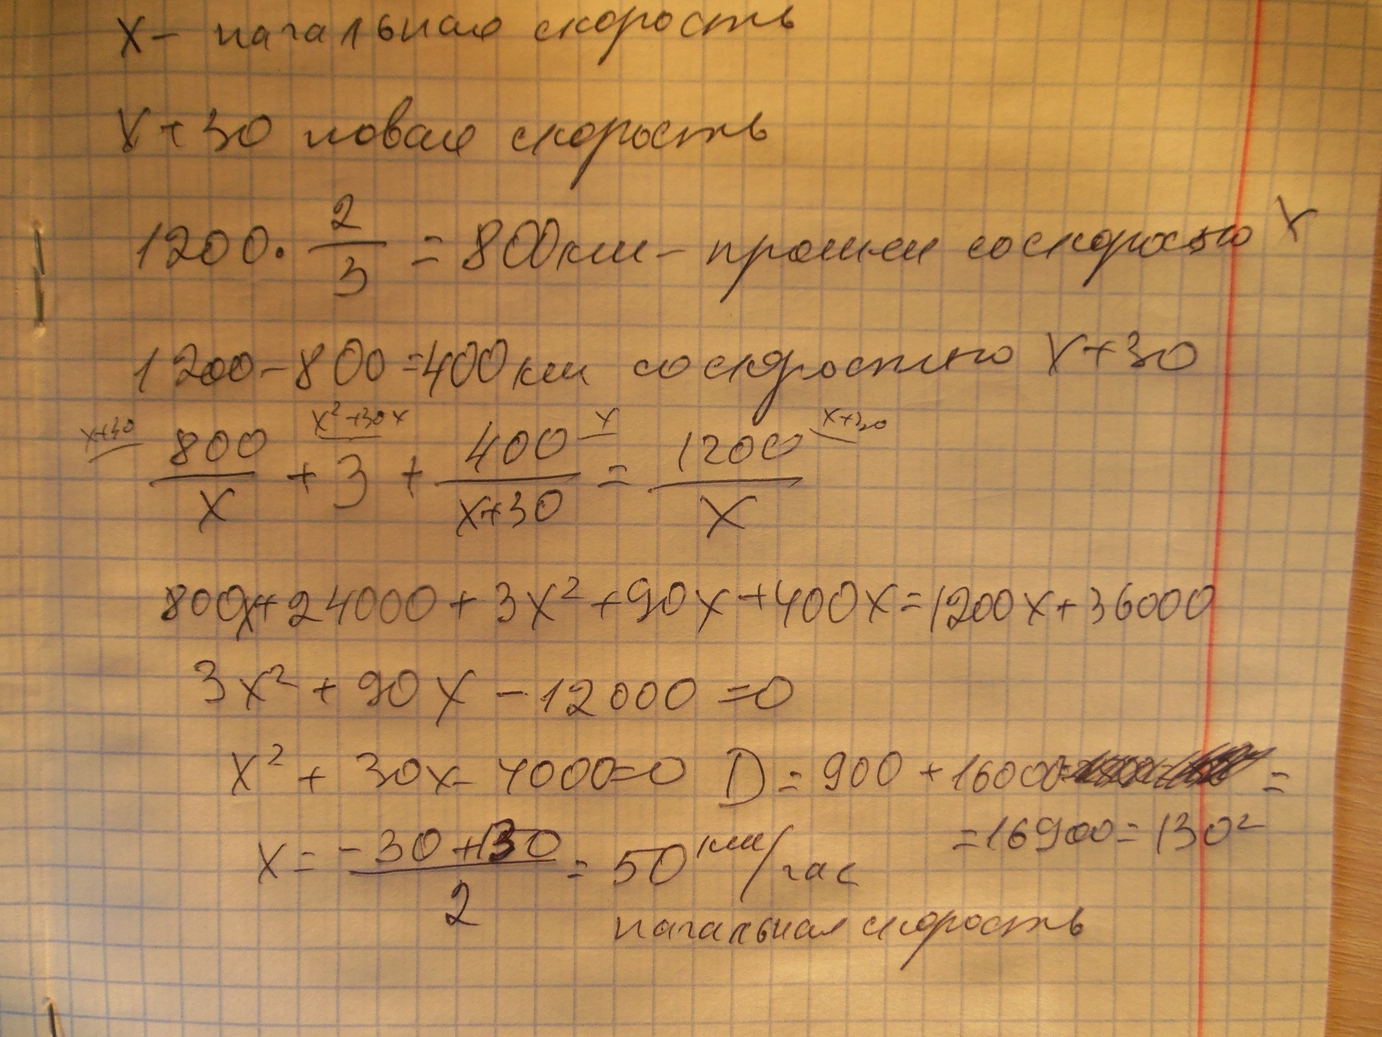 x - начальная скорость
x + 30 новая скорость
1200 · 2/3 = 800 км - прошел со скоростью x
1200 - 800 = 400 км со скоростью x + 30
x+30 x²+30x x x+30
800/x + 3 + 400/(x+30) = 1200/x
800x + 24000 + 3x² + 90x + 400x = 1200x + 36000
3x² + 90x - 12000 = 0
x² + 30x - 4000 = 0 D = 900 + 16000 =
= 16900 = 130²
x = (-30 + 130)/2 = 50 км/час
начальная скорость